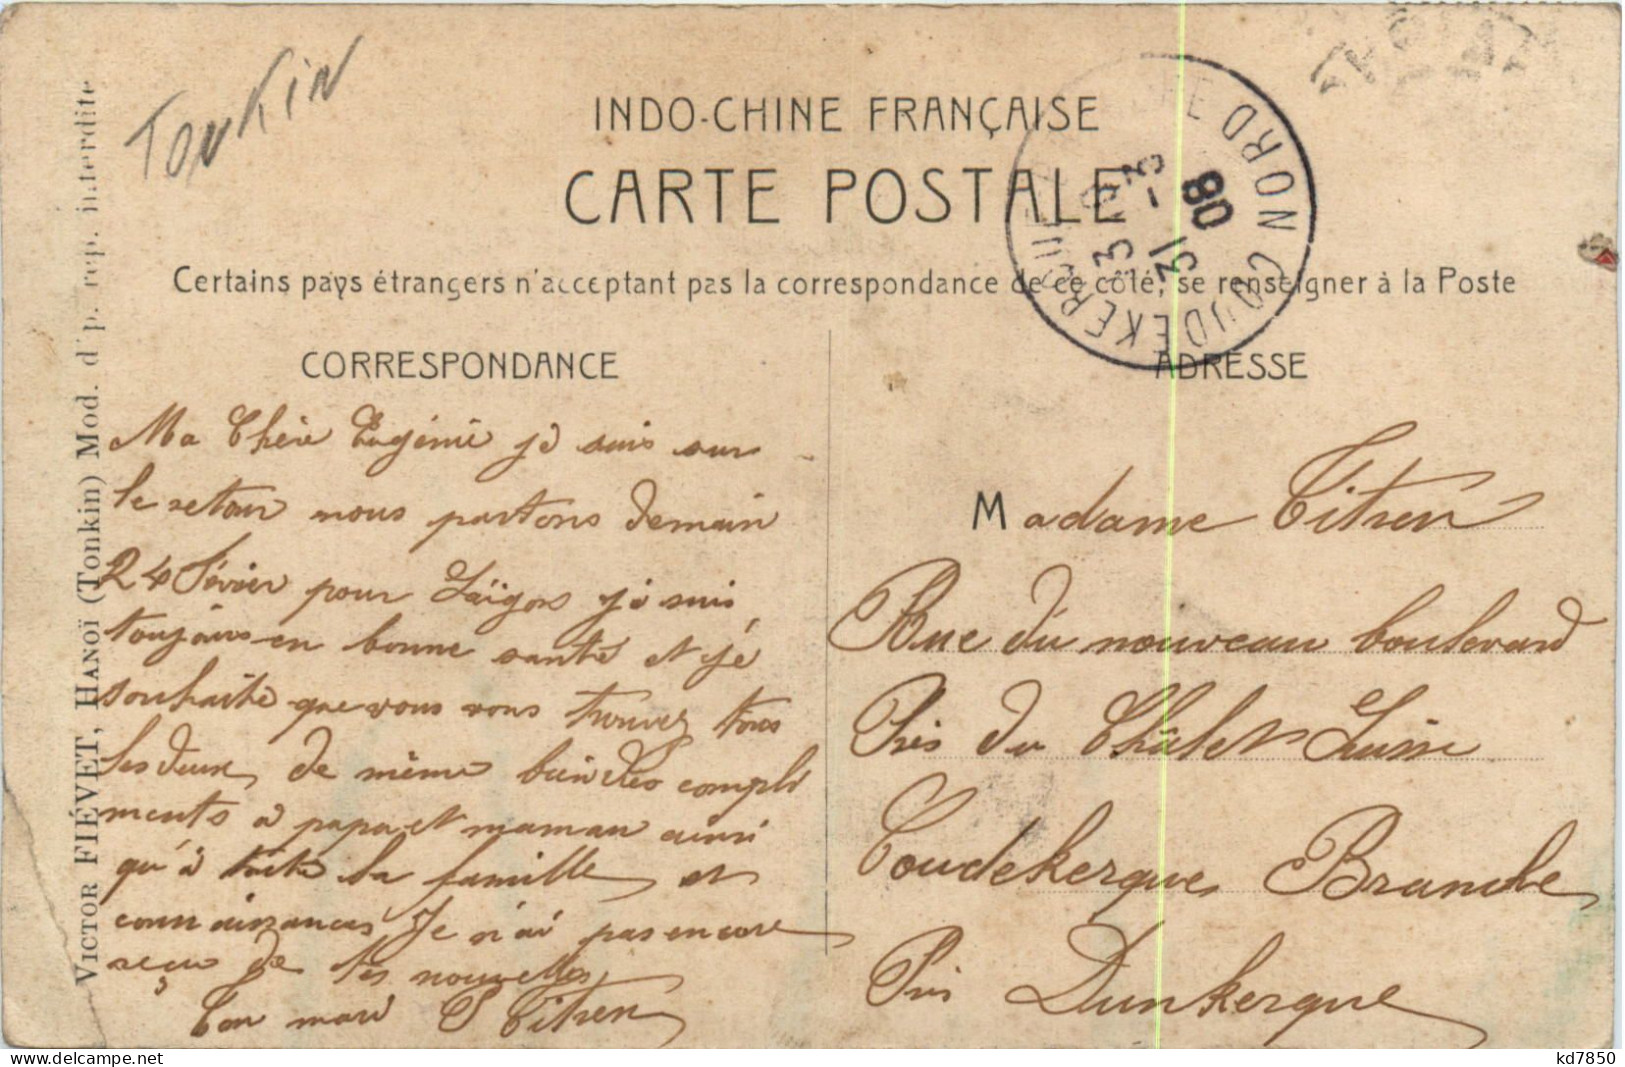 Tonkin
INDO-CHINE FRANÇAISE
CARTE POSTALE
Certains pays étrangers n'acceptant pas la correspondance de ce côté, se renseigner à la Poste
COUDEKERQUE NORD
3 31 -3 08
VICTOR FIÉVET, HANOÏ (Tonkin) Mod. dép. rep. interdite
CORRESPONDANCE
Ma Chère Eugénie je suis sur
le retour nous partons demain
24 Février pour Saïgon je suis
toujours en bonne santé et je
souhaite que vous vous trouvez tous
les deux de même bien des compli
ments a papa et maman ainsi
qu'à toute la famille et
connaissances, Je n'ai pas encore
reçu de tes nouvelles
Ton mari E Titren
ADRESSE
Madame Titren
Rue du nouveau boulevard
Près du Châlet Suisse
Coudekerque Branche
Près Dunkerque
kd7850